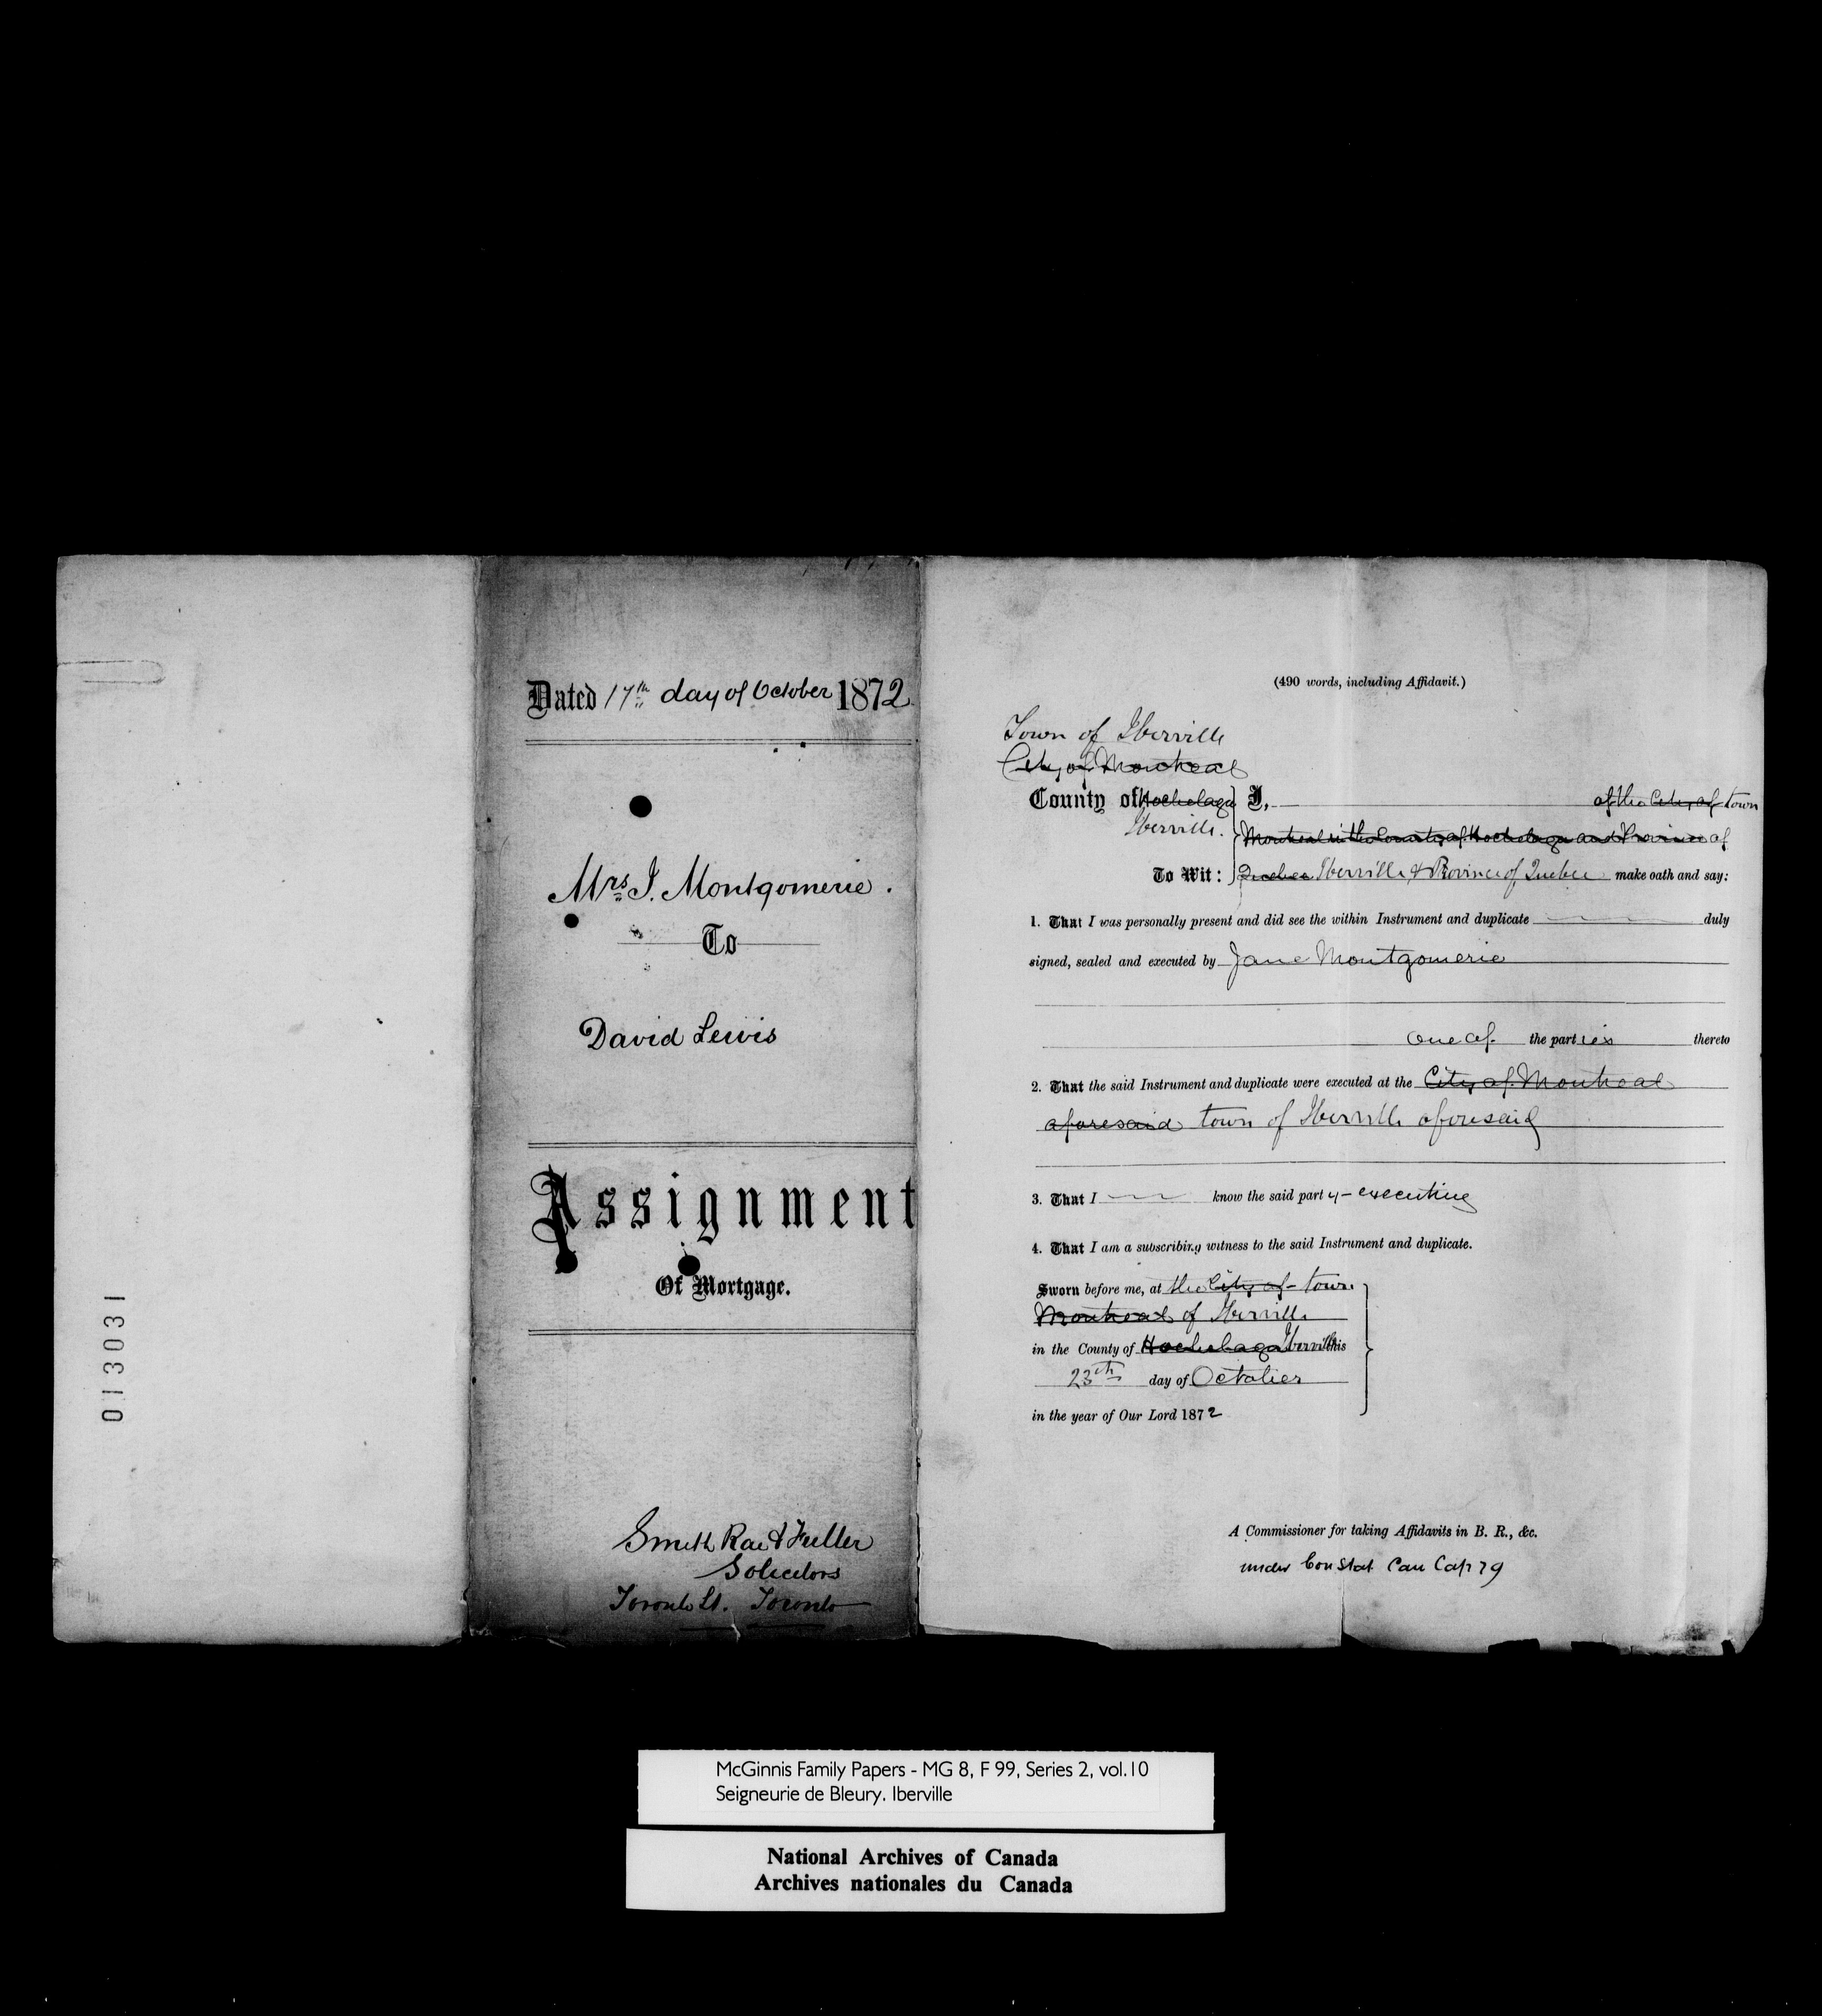 013031
Dated 17th day of October 1872
Mrs J. Montgomerie.
To
David Lewis
Assignment
Of Mortgage.
Smith Rae & Fuller
Solicitors
Toronto St. Toronto
(490 words, including Affidavit.)
Town of Iberville
City of Montreal
County of Hochelaga I, of the City of town
Iberville. Montreal in the County of Hochelaga and Province of
To Wit: Quebec Iberville & Province of Quebec make oath and say:
1. That I was personally present and did see the within Instrument and duplicate duly
signed, sealed and executed by Jane Montgomerie
one of the parties thereto
2. That the said Instrument and duplicate were executed at the City of Montreal
aforesaid town of Iberville aforesaid
3. That I know the said party executing
4. That I am a subscribing witness to the said Instrument and duplicate.
Sworn before me, at the City of town
Montreal of Iberville
in the County of Hochelaga Iberville this
23th day of October
in the year of Our Lord 1872
A Commissioner for taking Affidavits in B. R., &c.
under Con Stat Can Cap 79
McGinnis Family Papers - MG 8, F 99, Series 2, vol.10
Seigneurie de Bleury. Iberville
National Archives of Canada
Archives nationales du Canada